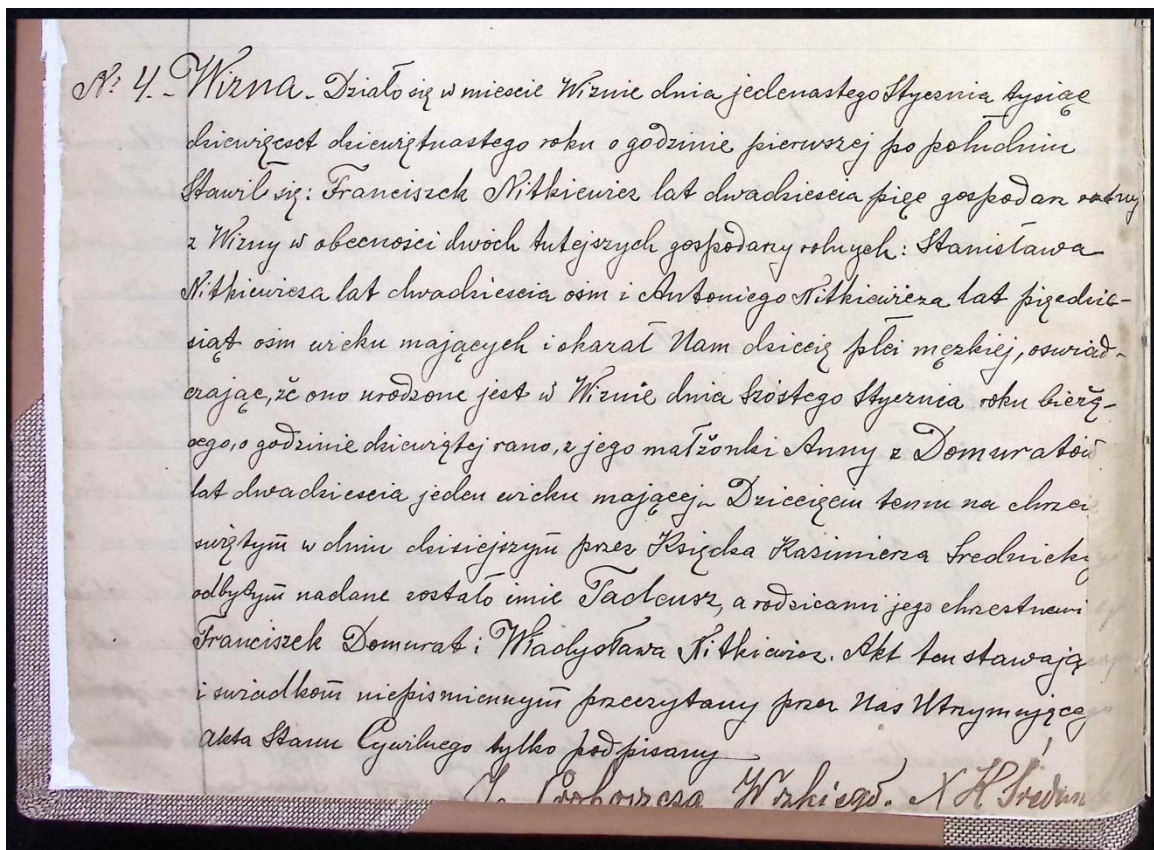 Nº 4. Wizna. Działo się w miescie Wiznie dnia jedenastego Stycznia tysiąc
dziewięcset dziewiętnastego roku o godzinie pierwszej po południu
Stawił się: Franciszek Nitkiewicz lat dwadziescia pięc gospodarz rolny
z Wizny w obecności dwóch tutejszych gospodarzy rolnych: Stanisława
Nitkiewicza lat dwadziescia ośm i Antoniego Nitkiewicza lat pięędzie-
siąt ośm wieku mających i okazał Nam dziecię płci męzkiej, oswiad-
czając, że ono urodzone jest w Wiznie dnia szóstego Stycznia roku bieżą-
cego, o godzinie dziewiątej rano, z jego małżonki Anny z Domuratów
lat dwadziescia jeden wieku mającej. Dziecięciu temu na chrzci
swiętym w dniu dzisiejszym przez Księdza Kazimierza Srednicki
odbytym nadane zostało imie Tadeusz, a rodzicami jego chrzestnemi
Franciszek Domurat i Władysława Nitkiewicz. Akt ten stawają
i swiadkom niepismiennym przeczytany przez Nas Utrzymującego
Akta Stanu Cywilnego tylko podpisany
X K Sredn